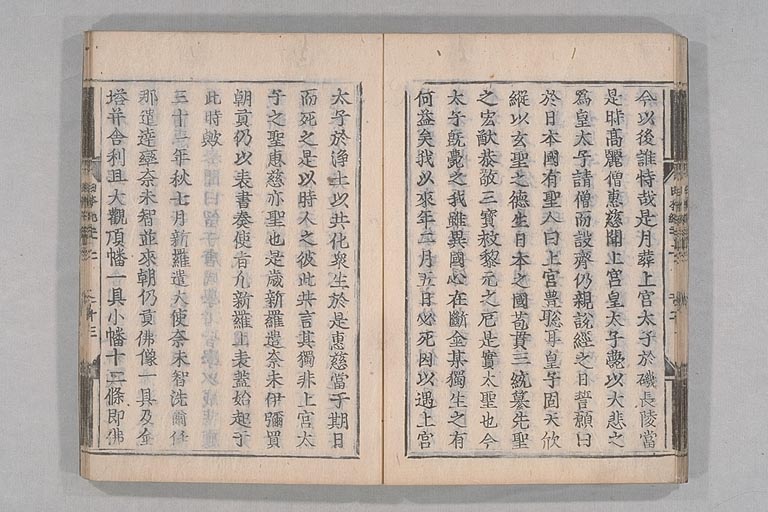 今以後誰恃哉是月葬上宮太子於磯長陵當
是時髙麗僧惠慈聞上宮皇太子薨以大悲之
爲皇太子請僧而設齊仍親說經之日誓願曰
於日本國有聖人曰上宮豊聡耳皇子固天攸
縱以玄聖之德生日本之國苞貫三統纂先聖
之宏猷恭敬三寶救黎元之厄是實太聖也今
太子旣薨之我雖異國心在斷金某獨生之有
何益矣我以來年二月五日必死因以遇上宮
太子於浄土以共化衆生於是惠慈當于期日
而死之是以時人之彼此共言其獨非上宮太
子之聖惠慈亦聖也是歳新羅遣奈末伊彌買
朝貢仍以表書奏使旨凢新羅上表蓋始起于
此時歟
三十一年秋七月新羅遣大使奈末智洗爾任
那遣達率奈末智並來朝仍貢佛像一具及金
塔并舎利且大觀頂幡一具小幡十二條即佛